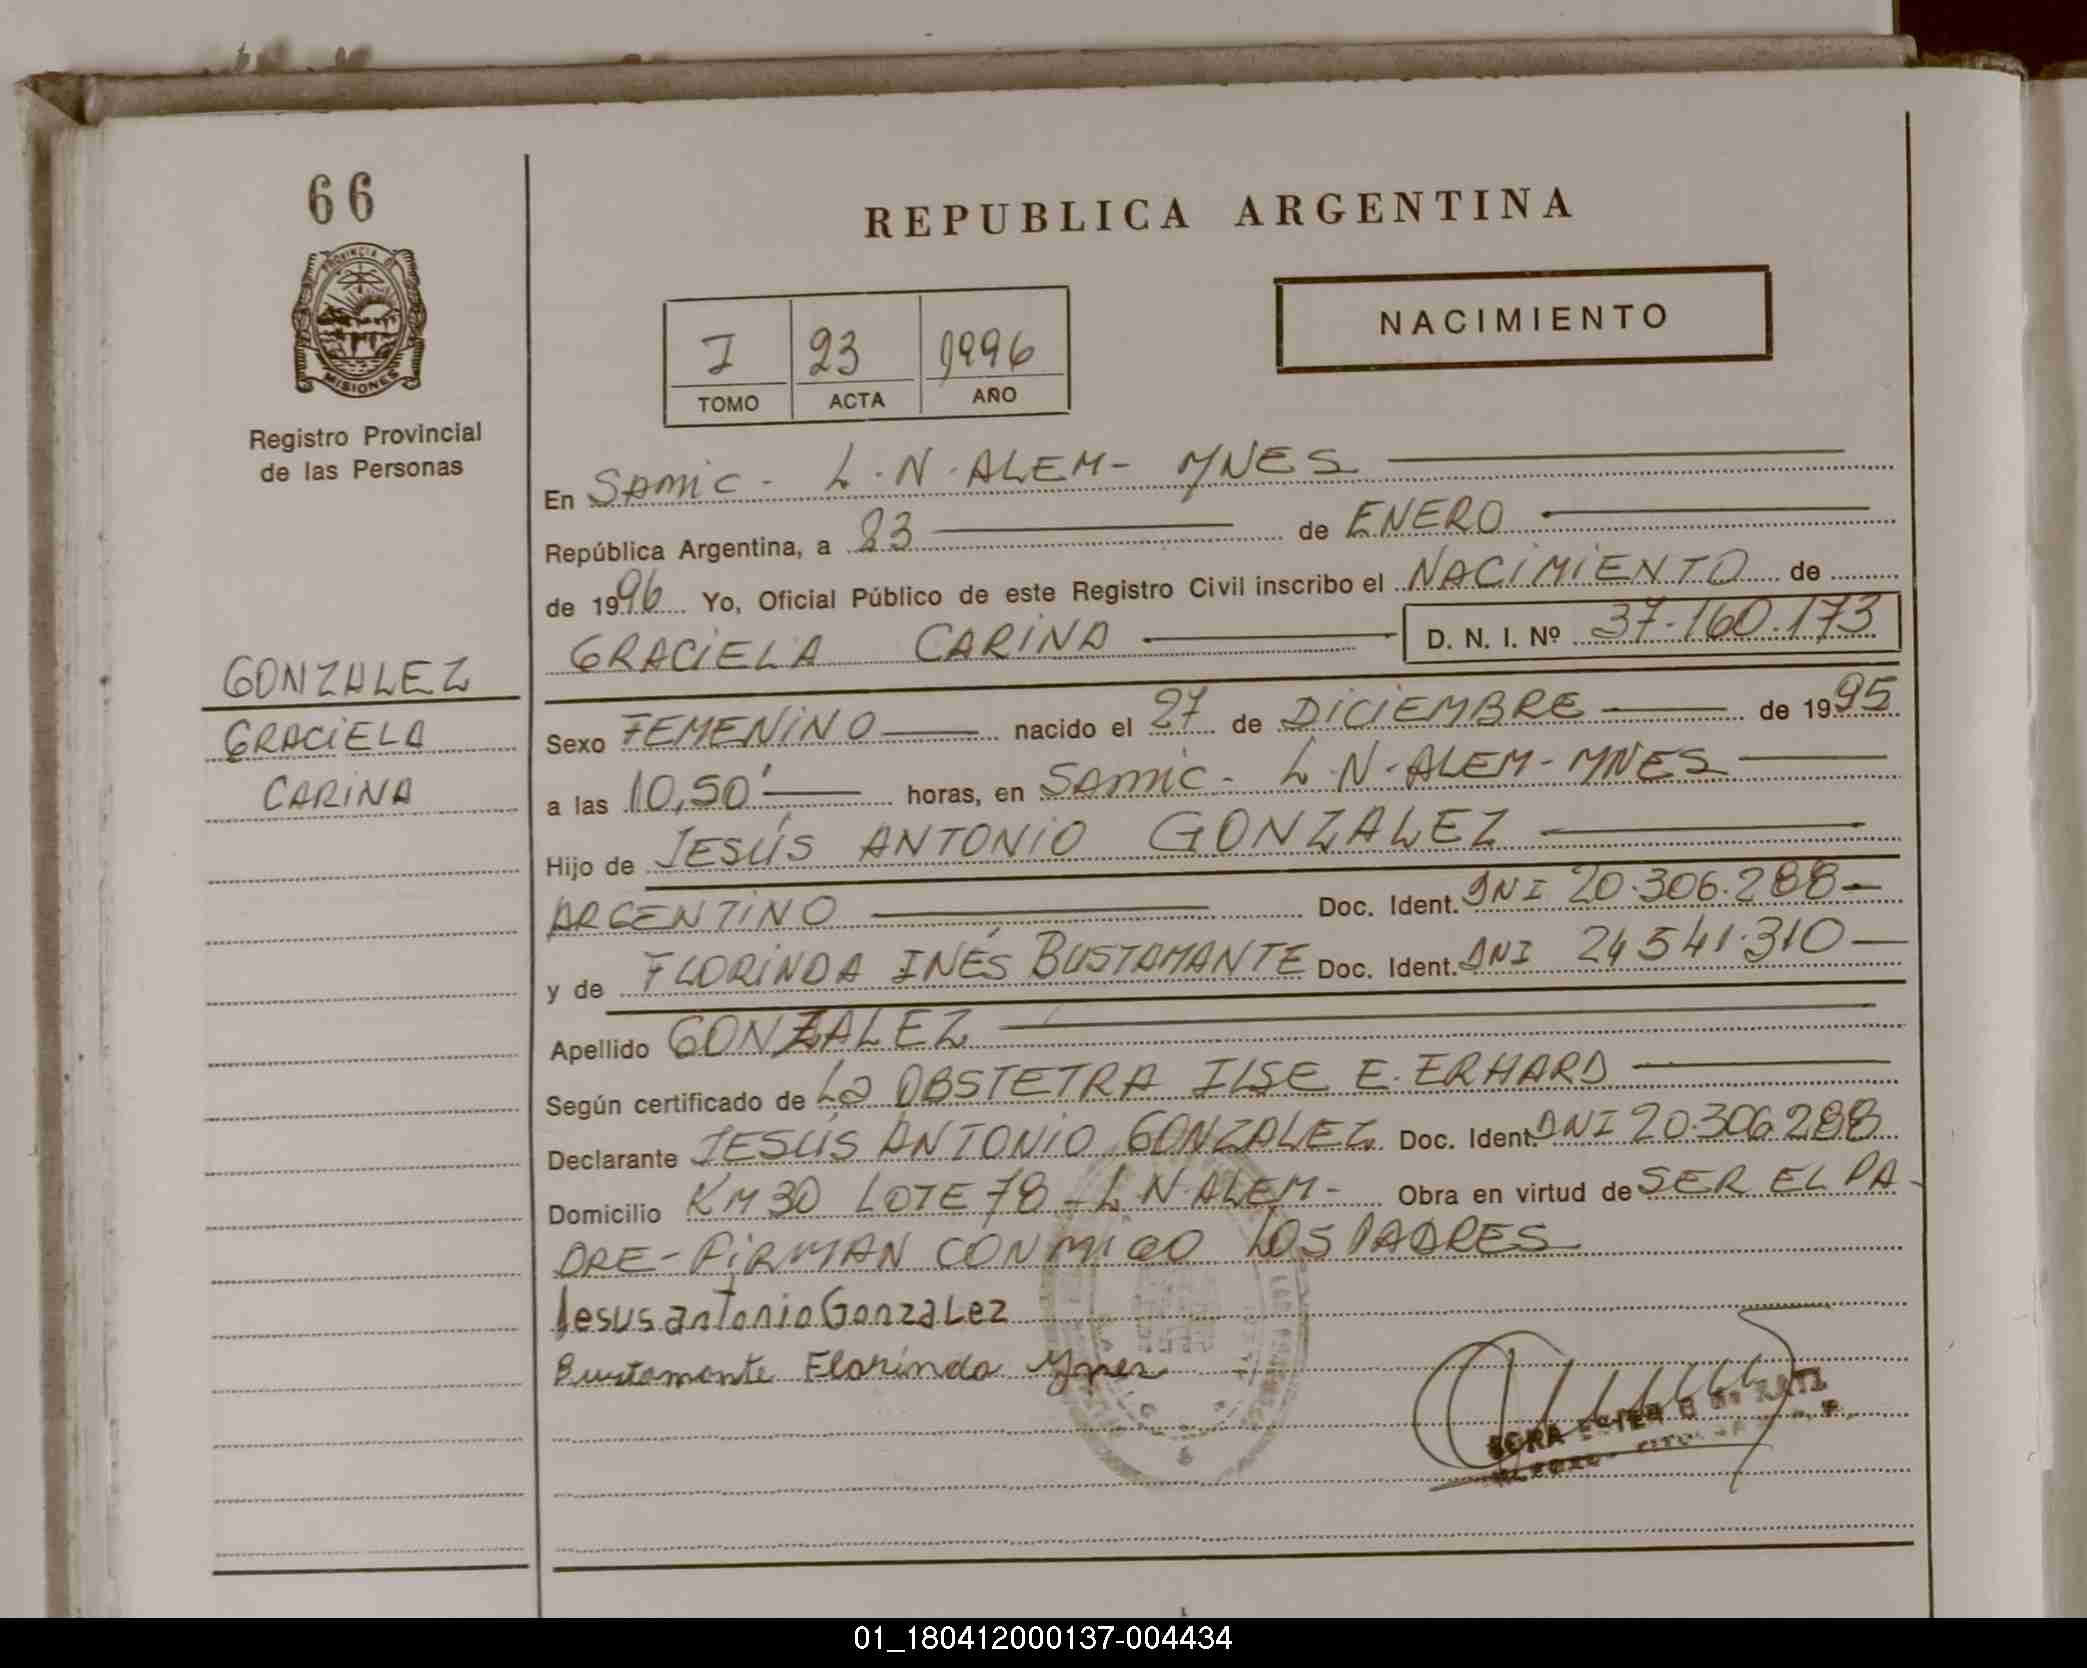 66
PROVINCIA DE
MISIONES
Registro Provincial
de las Personas
GONZALEZ
GRACIELA
CARINA
REPUBLICA ARGENTINA
I 23 1996
TOMO ACTA AÑO
NACIMIENTO
En SAMIC - L.N. ALEM - MNES
República Argentina, a 23 de ENERO
de 1996 Yo, Oficial Público de este Registro Civil inscribo el NACIMIENTO de
GRACIELA CARINA D. N. I. Nº 37.160.173
Sexo FEMENINO nacido el 27 de DICIEMBRE de 1995
a las 10,50' horas, en SAMIC - L.N. ALEM - MNES
Hijo de JESÚS ANTONIO GONZALEZ
ARGENTINO Doc. Ident. DNI 20.306.288
y de FLORINDA INÉS BUSTAMANTE Doc. Ident. DNI 24541.310
Apellido GONZALEZ
Según certificado de La OBSTETRA ILSE E. ERHARD
Declarante JESÚS ANTONIO GONZALEZ Doc. Ident. DNI 20.306.288
Domicilio KM 30 LOTE 78 - L.N. ALEM - Obra en virtud de SER EL PA-
DRE - FIRMAN CONMIGO LOS PADRES
Jesus antonio Gonzalez
Bustamante Florinda Ynes
01_180412000137-004434